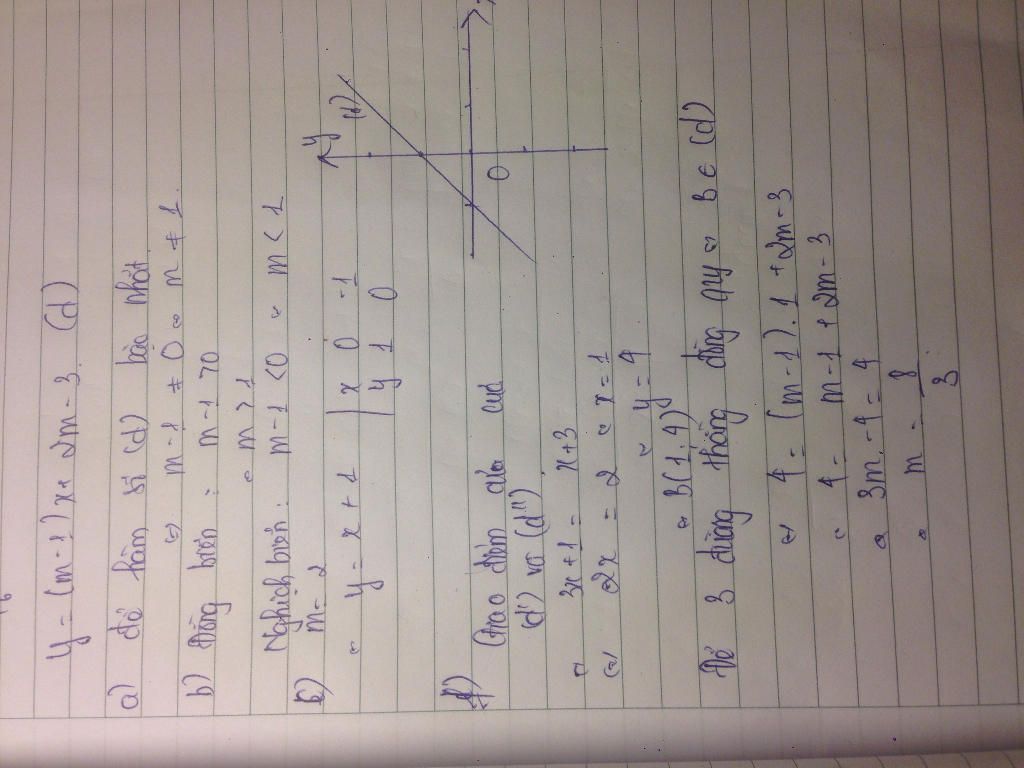 y = (m-1)x + 2m-3. (d)
a) để hàm số (d) bậc nhất
⇒ m-1 ≠ 0 ⇔ m ≠ 1.
b) Đồng biến: m-1 > 0
⇔ m > 1
Nghịch biến: m-1 < 0 ⇔ m < 1
c) m = 2
⇔ y = x + 1
x 0 -1
y 1 0
y
(d)
O
Giao điểm của
d') và (d'')
⇔ 3x+1 = x+3
⇔ 2x = 2 ⇔ x = 1
⇔ y = 4
⇔ B(1,4)
Để 3 đường thẳng đồng quy ⇔ B ∈ (d)
⇔ 4 = (m-1).1 + 2m-3
⇔ 4 = m-1+2m-3
⇔ 3m-4 = 4
⇔ m = 8/3